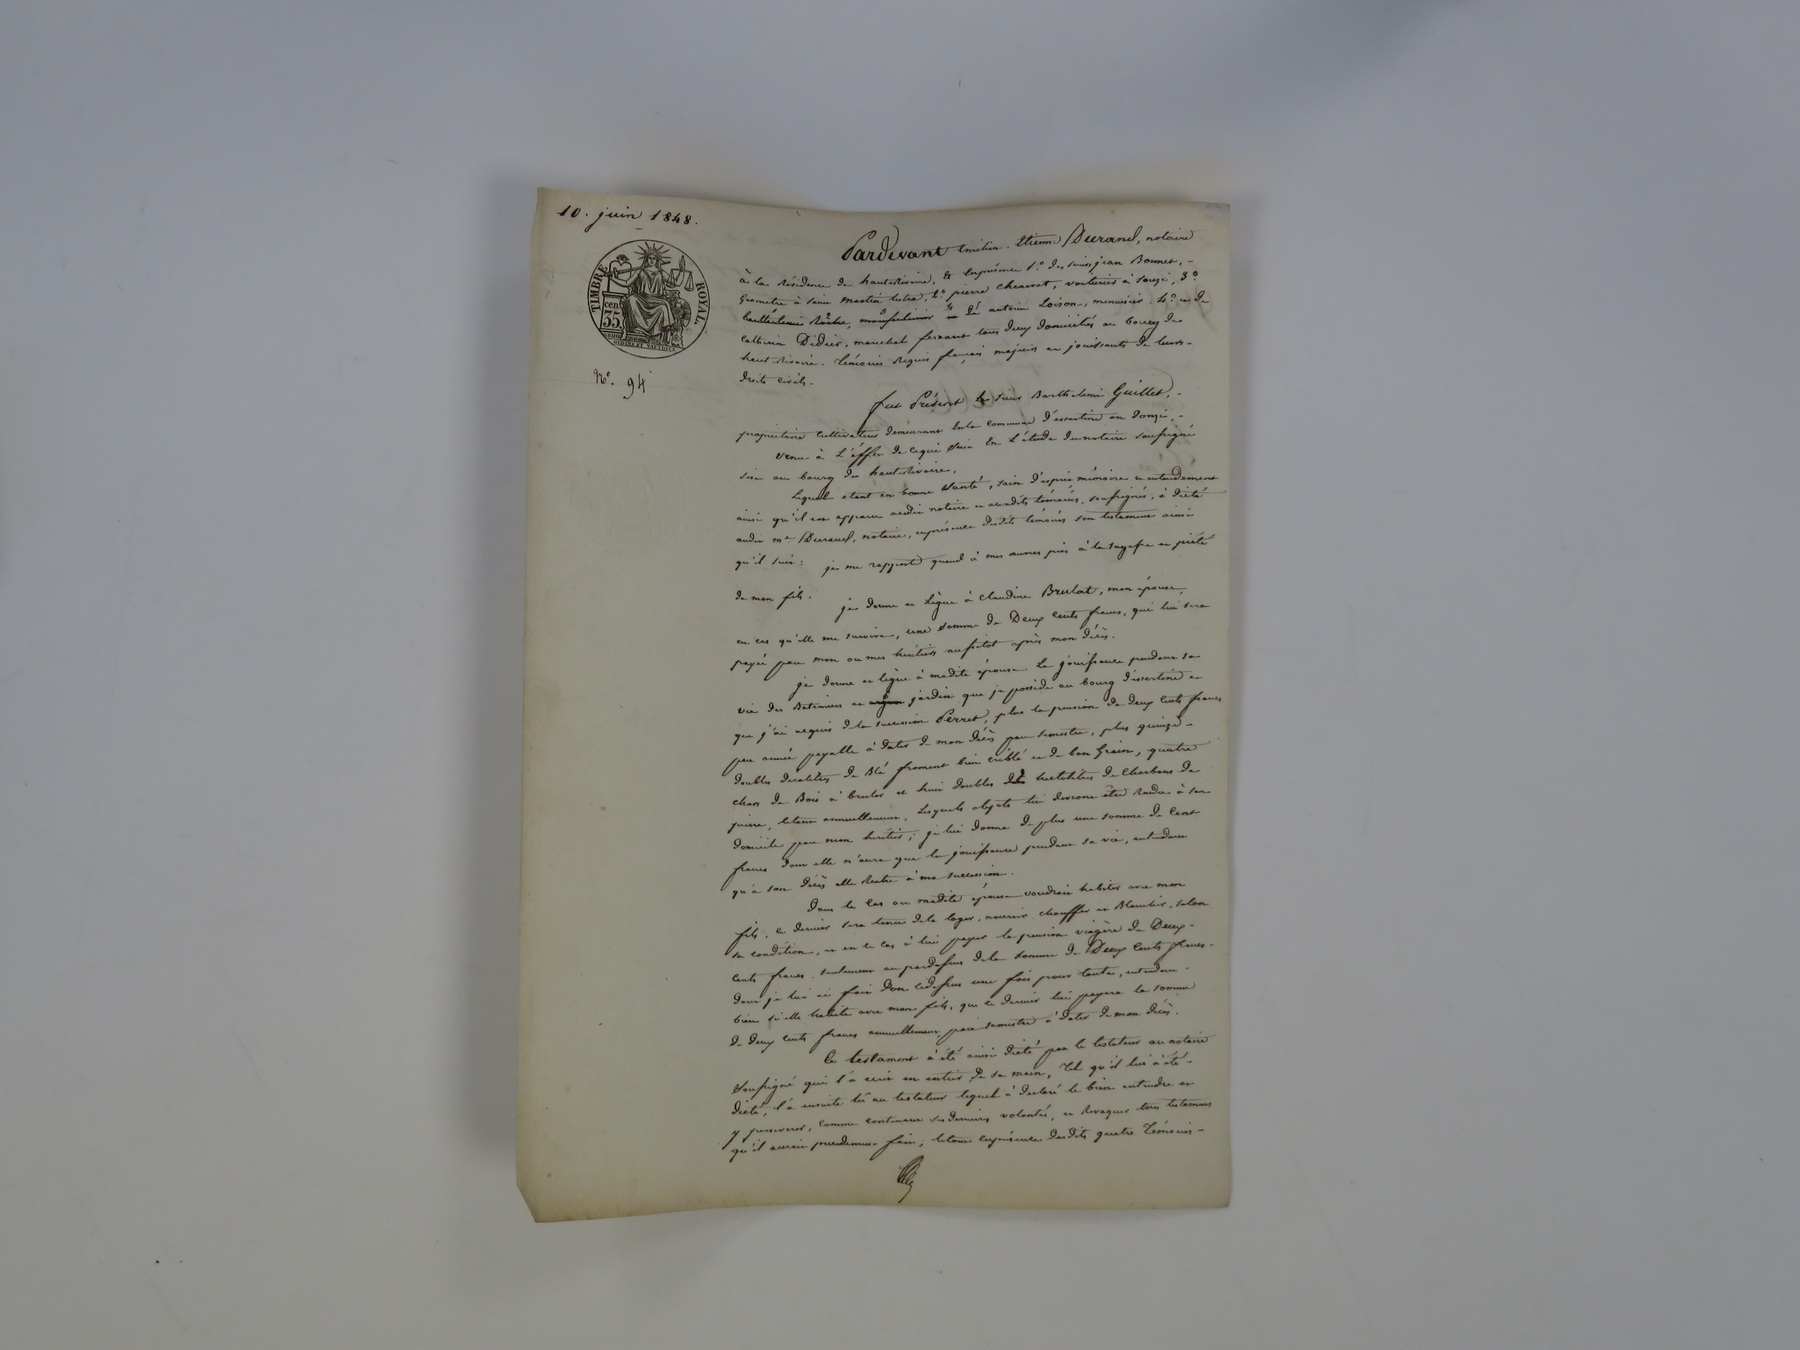 10. juin 1848.
TIMBRE ROYAL.
cen
35
No. 94
Pardevant Emilien Etienne Durand, notaire
à la résidence de hauterivoire, & En présence 1.o des sieurs jean Bonnet,
Géomètre à saint martin, 2.o pierre voiturier à 3.o
antoine Loison, menuisier, 4.o et de
Didier, marechal ferrant tous deux domiciliés au bourg de
haut Rivoire. témoins Requis français majeurs en jouissants de leurs
droits civils.
fut Présent Le sieur Barthelemi Guillet,
propriétaire cultivateur demeurant en la commune d'essertine en donzi,
venu à L'effet de cequi suit En L'étude du notaire soussigné
sise au bourg de hauterivoire.
Lequel etant en bonne Santé, sain d'esprit mémoire et entendement
ainsi qu'il est apparu audit notaire et auxdits témoins, soussignés, à dicté
audit me Durand, notaire, en présence desdits témoins son testament ainsi
qu'il suit : je me rapporte quand à mes œuvres pies à la sagesse et piété
de mon fils. je donne et Légue à Claudine Brulat, mon épouse,
en cas qu'elle me survive, une somme de Deux Cents francs, qui lui sera
payée par mon ou mes heritiers aussitot après mon décès.
je donne et légue à madite épouse La jouissance pendant sa
vie des Batimens et jardin que je posséde au bourg d'essertine et
que j'ai acquis de la succession Perret, plus la pension de deux Cents francs
par année payable à dater de mon décès par semestre, plus quinze
doubles decalitres de Blé froment bien criblé et de bon Grain, quatre
chars de Bois à bruler et huit doubles de hectolitres de Charbons de
pierre, letout annuellement, Lesquels objets lui devront être Rendus à son
domicile par mon heritier ; je lui donne de plus une somme de Cent
francs dont elle n'aura que la jouissance pendant sa vie, entendant
qu'à son décès elle Rentre à ma succession.
Dans le Cas ou madite épouse voudrait habiter avec mon
fils, ce dernier sera tenu dela loger, nourrir, chauffer et Blanchir, selon
sa condition, et en ce cas à lui payer la pension viagère de Deux
Cents francs, seulement au pardessus dela somme de Deux Cents francs
dont je lui ai fait don cidessus une fois pour toute, entendant
bien si elle habite avec mon fils, que ce dernier lui payera la somme
de deux Cents francs annuellement par semestre à Dater de mon décès.
Ce testament à été ainsi dicté par le testateur au notaire
soussigné qui l'a ecrit en entier de sa main, Tel qu'il lui à été
dicté, l'a ensuite lu au testateur lequel à declaré le bien entendre et
y perseverer, comme contenant ses dernieres volontés, et Revoquer tous testamens
qu'il aurait precedemment fait, letout en présence desdits quatre Témoins